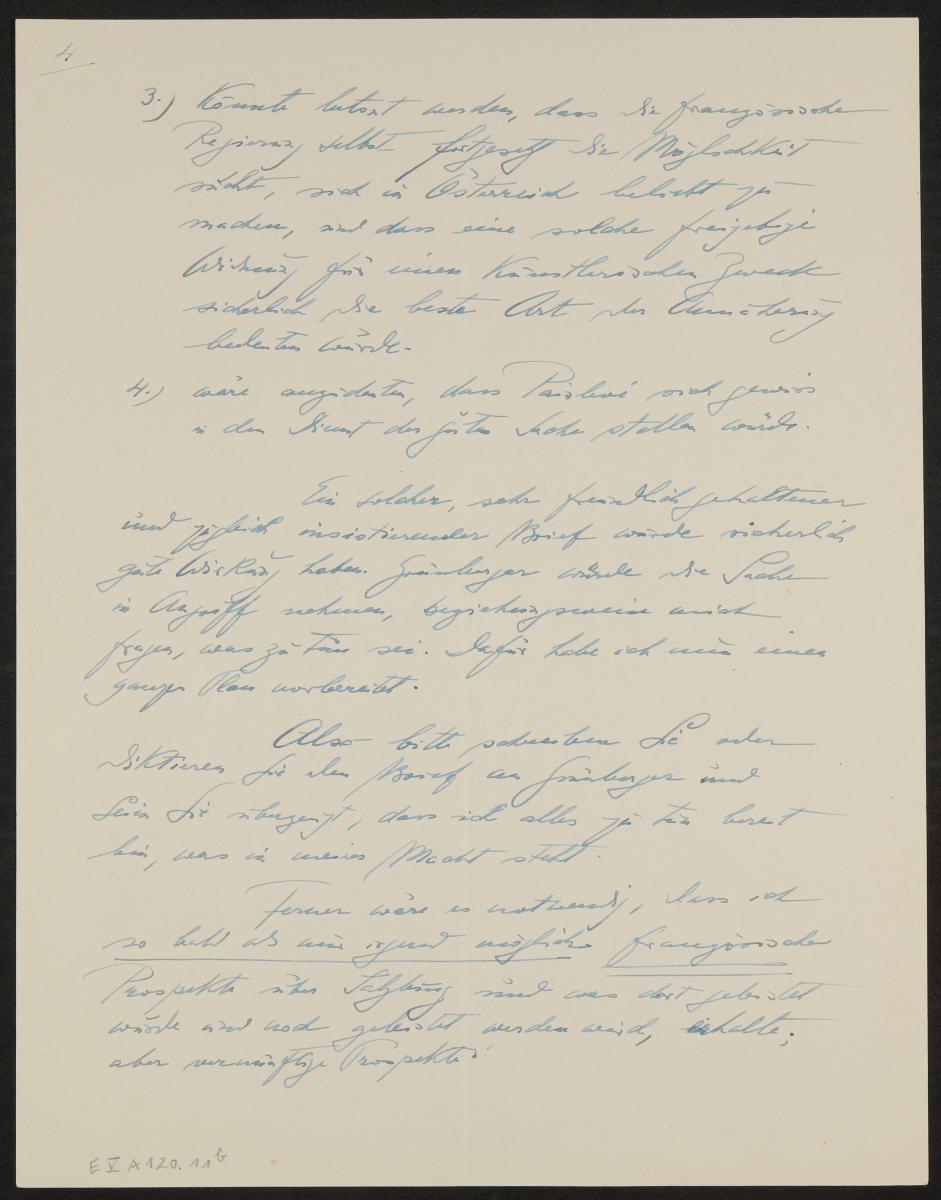 4
3.) Könnte betont werden, dass die französische
Regierung selbst fortgesetzt die Möglichkeit
sucht, sich in Österreich beliebt zu
machen, und dass eine solche freigebige
Widmung für einen Künstlerischen Zweck
sicherlich die beste Art der Annäherung
bedeuten würde.
4.) wäre anzudeuten, dass Painlevé sich gewiss
in den Dienst der guten Sache stellen würde.
Ein solcher, sehr freundlich gehaltener
und zugleich insistierender Brief würde sicherlich
gute Wirkung haben. Grünberger würde die Sache
in Angriff nehmen, beziehungsweise mich
fragen, was zu tun sei. Dafür habe ich nun einen
ganzen Plan vorbereitet.
Also bitte, schreiben Sie oder
diktieren Sie den Brief an Grünberger und
seien Sie überzeugt, dass ich alles zu tun bereit
bin, was in meiner Macht steht.
Ferner wäre es notwendig, dass ich
so bald als nur irgend möglich französische
Prospekte über Salzburg und was dort geleistet
wurde und noch geleistet werden wird, erhalte;
aber vernünftige Prospekte!
E V A 120. 11 b